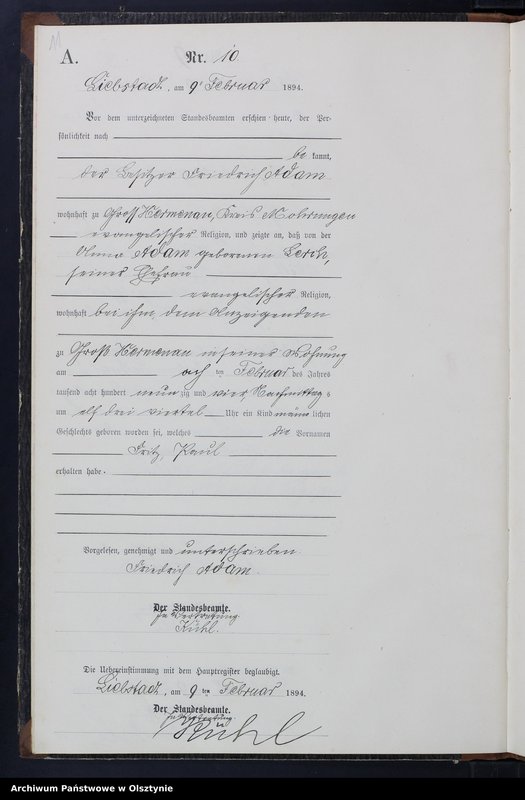 11
A.
Nr. 10
Liebstadt, am 9t Februar 1894.
Vor dem unterzeichneten Standesbeamten erschien heute, der Per-
sönlichkeit nach
be kannt,
der Besitzer Friedrich Adam
wohnhaft zu Groß Hermenau, Kreis Mohrungen
evangelischer Religion, und zeigte an, daß von der
Anna Adam geborenen
seiner Ehefrau
evangelischer Religion,
wohnhaft bei ihm, dem Anzeigenden
zu Groß Hermenau in seiner Wohnung
am acht ten Februar des Jahres
tausend acht hundert neun zig und vier Nachmittag s
um elf drei viertel Uhr ein Kind männ lichen
Geschlechts geboren worden sei, welches die Vornamen
Fritz, Paul
erhalten habe.
Vorgelesen, genehmigt und unterschrieben
Friedrich Adam.
Der Standesbeamte.
In Vertretung.
Kühl.
Die Uebereinstimmung mit dem Hauptregister beglaubigt.
Liebstadt, am 9 ten Februar 1894.
Der Standesbeamte.
In Vertretung.
Kühl
Archiwum Państwowe w Olsztynie